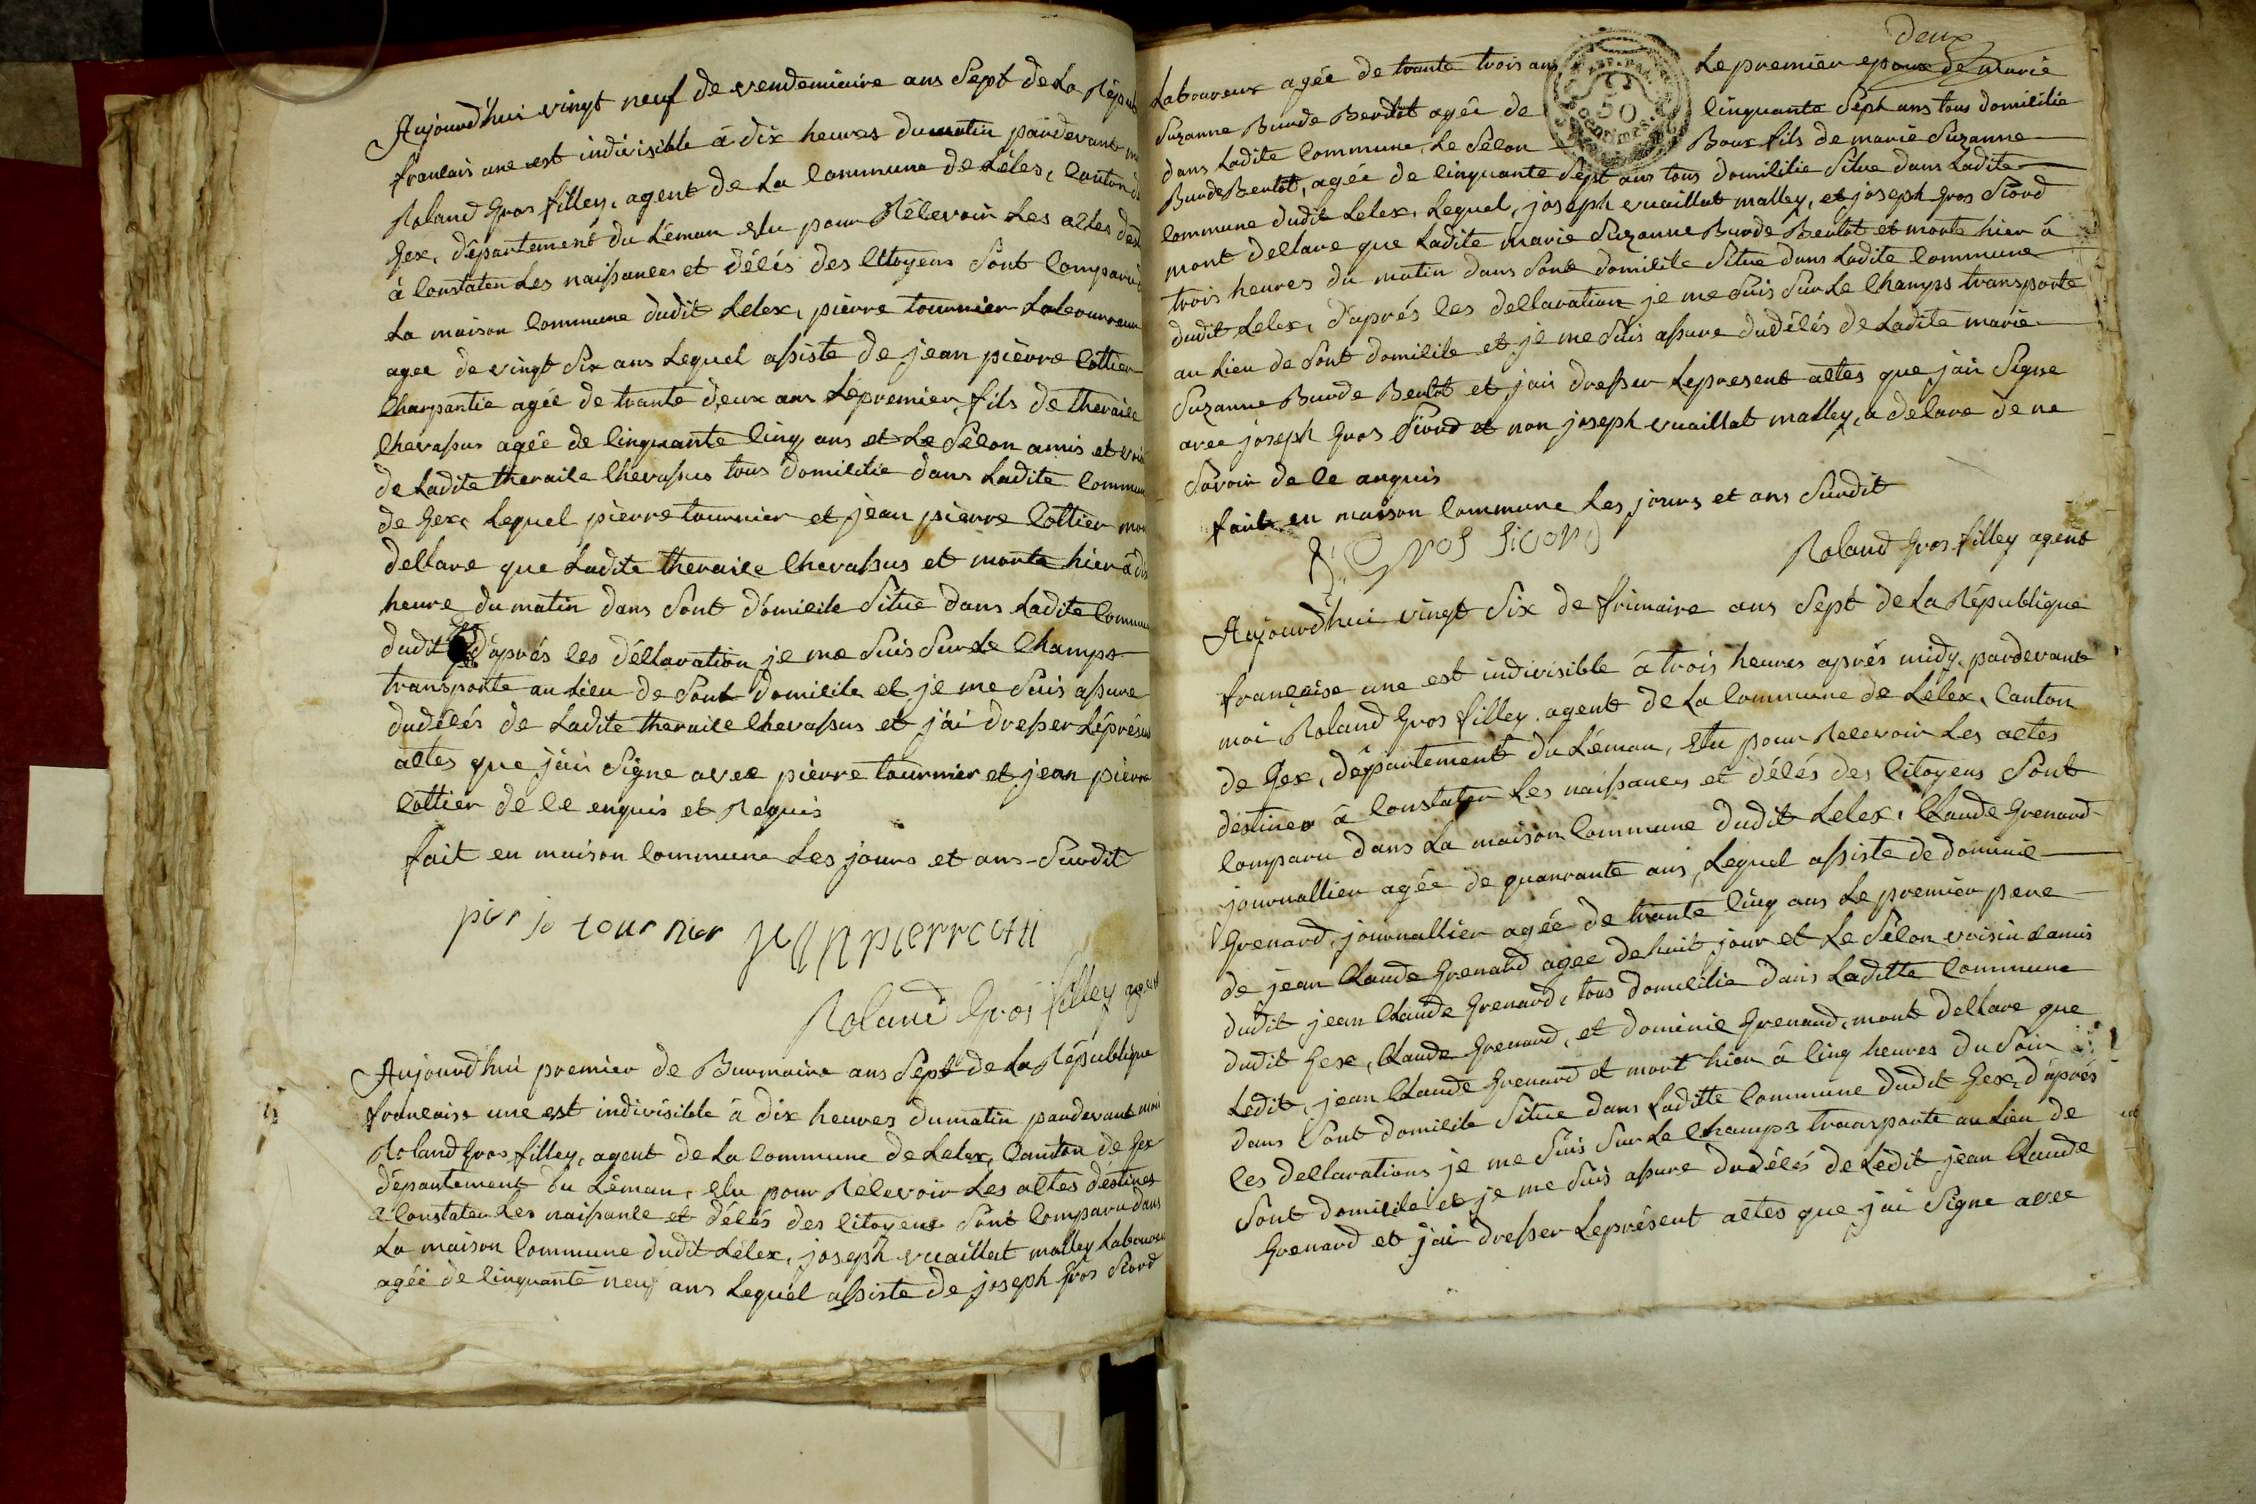 Aujourd'hui vingt neuf de vendemiaire ans Sept de La Répub
francais une est indivisible à dix heures du matin pardevant m
Roland Gros filley, agent de La Commune de Lélex, Canton d
Gex, département du Léman elu pour Rélevoir Les actes dest
à Constater Les naissances et décés des Citoyens Sont Comparu d
La maison Commune dudit Lelex, pierre tournier Laboureur
agee de vingt Six ans Lequel assiste de jean pierre Cottier
Charpantie agée de trante deux ans Lepremier fils de theraise
Chevassus agée de Cinquante Cinq ans et Le Sécon amis et voi
de Ladite theraise Chevassus tous domicilie dans Ladite Commun
de Gex, Lequel pierre tournier et jean pierre Cottier mon
declare que Ladite theraise Chevassus et morte hier à dix
heure du matin dans Sont domicile Situé dans Ladite Commun
dudit d'aprés Ces déclaration je me Suis Sur Le Champs
transporte au Lieu de Sont domicile et je me Suis assure
dudécés de Ladite theraise Chevassus et j'ai dresser Léprésen
actes que jai Signe avec pierre tournier et jean pierre
Cottier de Ce enquis et Requis
fait en maison Commune Les jours et ans Surdit
pier jo tournier jean pierre coti
Roland Gros filley agent
Aujourd'hui premier de Burmaire ans Sept de La République
francaise une est indivisible à dix heures dumatin pardevant moi
Roland Gros filley, agent de La Commune de Lelex, Canton de Gex
département du Léman, elu pour Relevoir Les actes déstines
à Constater Les naissance et décés des Citoyens Sont Comparu dans
La maison Commune dudit Lélex, joseph vuaillat malley Laboureu
agée de Cinquante neuf ans Lequel assiste de joseph Gros Siord
deux
Laboureur agée de trante trois ans Le premier epoux de Marie
Suzanne Burde Bertot agée de Cinquante Sept ans tous domicilie
dans Ladite Commune, Le Sécon Boux fils de marie Suzanne
Burde Bertot, agée de Cinquante Sept ans tous domicilie Situe dans Ladite
Commune dudit Lelex, Lequel, joseph vuaillat malley, et joseph Gros Siord
mont declare que Ladite marie Suzanne Burde Bertot et morte hier à
trois heures du matin dans Sont domicile Situe dans Ladite Commune
dudit Lelex, d'aprés Ces declaration je me Suis Sur Le Champs transporte
au Lieu de Sont domicile et je me Suis assure dudécés de Ladite marie
Suzanne Burde Bertot et jai dresser Lepresent actes que jai Signe
avec joseph Gros Siord et non joseph vuaillat malley, a delare de ne
Savoir de Ce anquis
fait en maison Commune Les jours et ans Surdit
J. Gros Siord
Roland Gros filley agent
Aujourd'hui vingt Six de frimaire ans Sept de La République
française une est indivisible à trois heures aprés midy pardevant
moi Roland Gros filley agent de La Commune de Lélex, Canton
de Gex, département du Léman, Elu pour Relevoir Les actes
destines à Constater Les naissances et décés des Citoyens Sont
Comparu dans La maison Commune dudit Lelex, Claude Grenard
journallier agée de quanrante ans, Lequel assiste de dominie
Grenard, journallier agée de trante Cinq ans Le premier pere
de jean Claude Grenard agée de huit jour et Le Sécon voisin eamis
dudit jean Claude Grenard, tous domicilie dans Laditte Commune
dudit Gex, Claude Grenard, et dominie Grenard, mont declare que
Ledit, jean Claude Grenard et mort hier à Cinq heures du Soir
dans Sont domicile Situe dans Laditte Commune dudit Gex, d'aprés
Ces declarations je me Suis Sur Le Champs transporte au Lieu de
Sont domicile et je me Suis assure dudécés de Lédit jean Claude
Grenard et j'ai dresser Leprésent actes que jai Signe avec